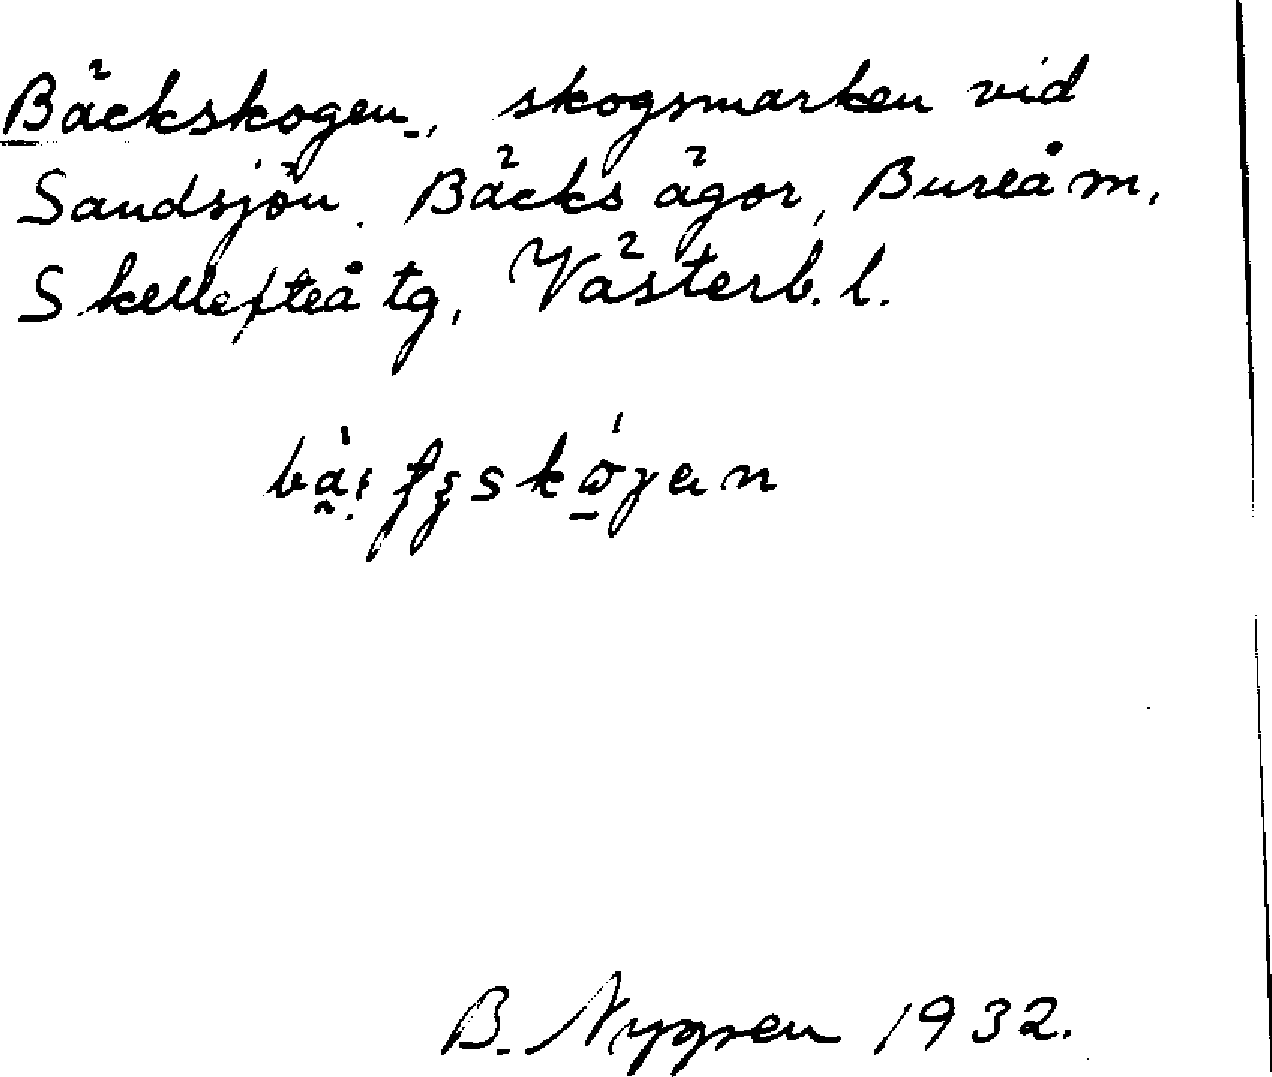 Bäckskogen, skogsmarken vid
Sandsjön. Bäcks ägor, Bureå m.
Skellefteå tg, Västerb. l.
B. Nygren 1932.